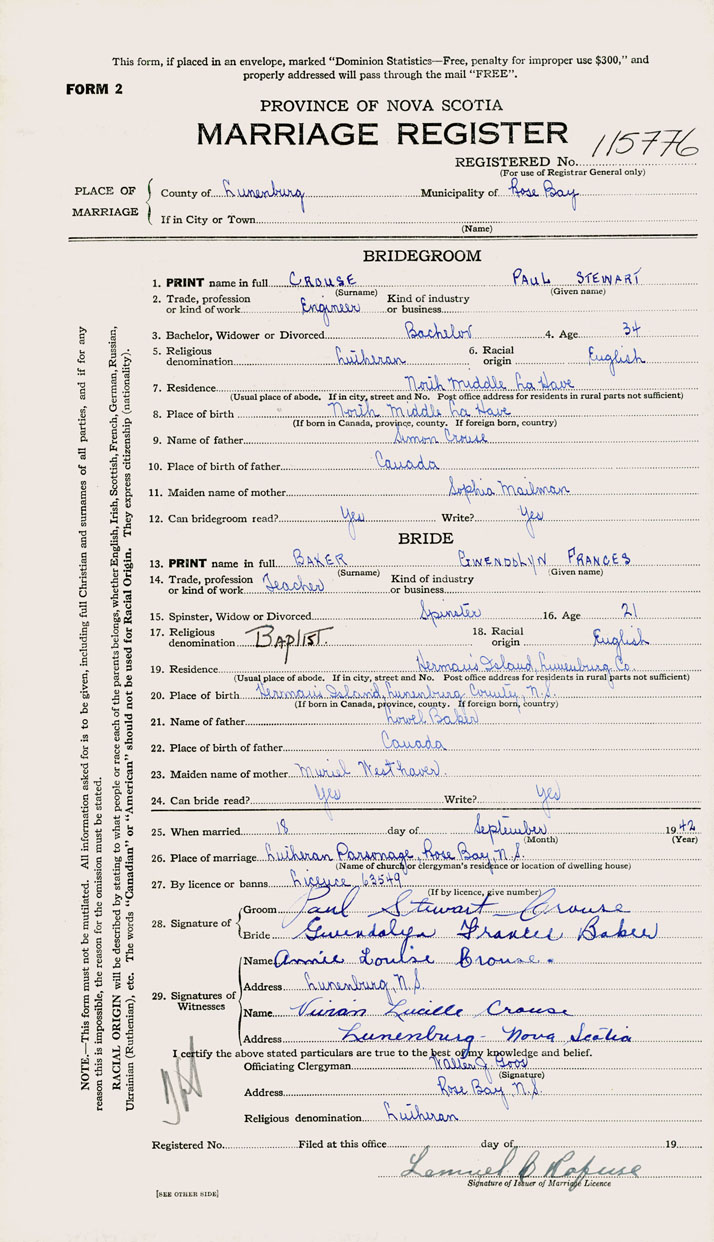 This form, if placed in an envelope, marked "Dominion Statistics—Free, penalty for improper use $300," and
properly addressed will pass through the mail "FREE".
FORM 2
PROVINCE OF NOVA SCOTIA
MARRIAGE REGISTER
REGISTERED No. 115776
(For use of Registrar General only)
PLACE OF MARRIAGE
County of Lunenburg Municipality of Rose Bay
If in City or Town
(Name)
BRIDEGROOM
1. PRINT name in full CROUSE PAUL STEWART
(Surname) (Given name)
2. Trade, profession or kind of work Engineer Kind of industry or business
3. Bachelor, Widower or Divorced Bachelor 4. Age 34
5. Religious denomination Lutheran 6. Racial origin English
7. Residence North Middle La Have
(Usual place of abode. If in city, street and No. Post office address for residents in rural parts not sufficient)
8. Place of birth North Middle La Have
(If born in Canada, province, county. If foreign born, country)
9. Name of father Simon Crouse
10. Place of birth of father Canada
11. Maiden name of mother Sophia Mailman
12. Can bridegroom read? Yes Write? Yes
BRIDE
13. PRINT name in full BAKER GWENDOLYN FRANCES
(Surname) (Given name)
14. Trade, profession or kind of work Teacher Kind of industry or business
15. Spinster, Widow or Divorced Spinster 16. Age 21
17. Religious denomination BAPTIST. 18. Racial origin English
19. Residence Herman's Island, Lunenburg Co.
(Usual place of abode. If in city, street and No. Post office address for residents in rural parts not sufficient)
20. Place of birth Herman's Island, Lunenburg County, N.S.
(If born in Canada, province, county. If foreign born, country)
21. Name of father Lowel Baker
22. Place of birth of father Canada
23. Maiden name of mother Muriel Westhaver.
24. Can bride read? Yes Write? Yes
25. When married 18 day of September 1942
(Month) (Year)
26. Place of marriage Lutheran Parsonage, Rose Bay, N.S.
(Name of church or clergyman's residence or location of dwelling house)
27. By licence or banns Licence 63549
(If by licence, give number)
28. Signature of
Groom Paul Stewart Crouse
Bride Gwendolyn Frances Baker
29. Signatures of Witnesses
Name Annie Louise Crouse.
Address Lunenburg, N.S.
Name Vivian Lucille Crouse
Address Lunenburg - Nova Scotia
I certify the above stated particulars are true to the best of my knowledge and belief.
Officiating Clergyman Walter J. Goos
(Signature)
Address Rose Bay, N.S.
Religious denomination Lutheran
Registered No. Filed at this office day of 19
Lemuel
Signature of Issuer of Marriage Licence
[SEE OTHER SIDE]
NOTE.—This form must not be mutilated. All information asked for is to be given, including full Christian and surnames of all parties, and if for any
reason this is impossible, the reason for the omission must be stated.
RACIAL ORIGIN will be described by stating to what people or race each of the parents belongs, whether English, Irish, Scottish, French, German, Russian,
Ukrainian (Ruthenian), etc. The words "Canadian" or "American" should not be used for Racial Origin. They express citizenship (nationality).